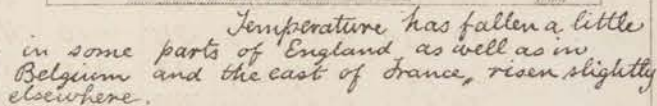 Temperature has fallen a little
in some parts of England as well as in
Belgium and the east of France, risen slightly
elsewhere.